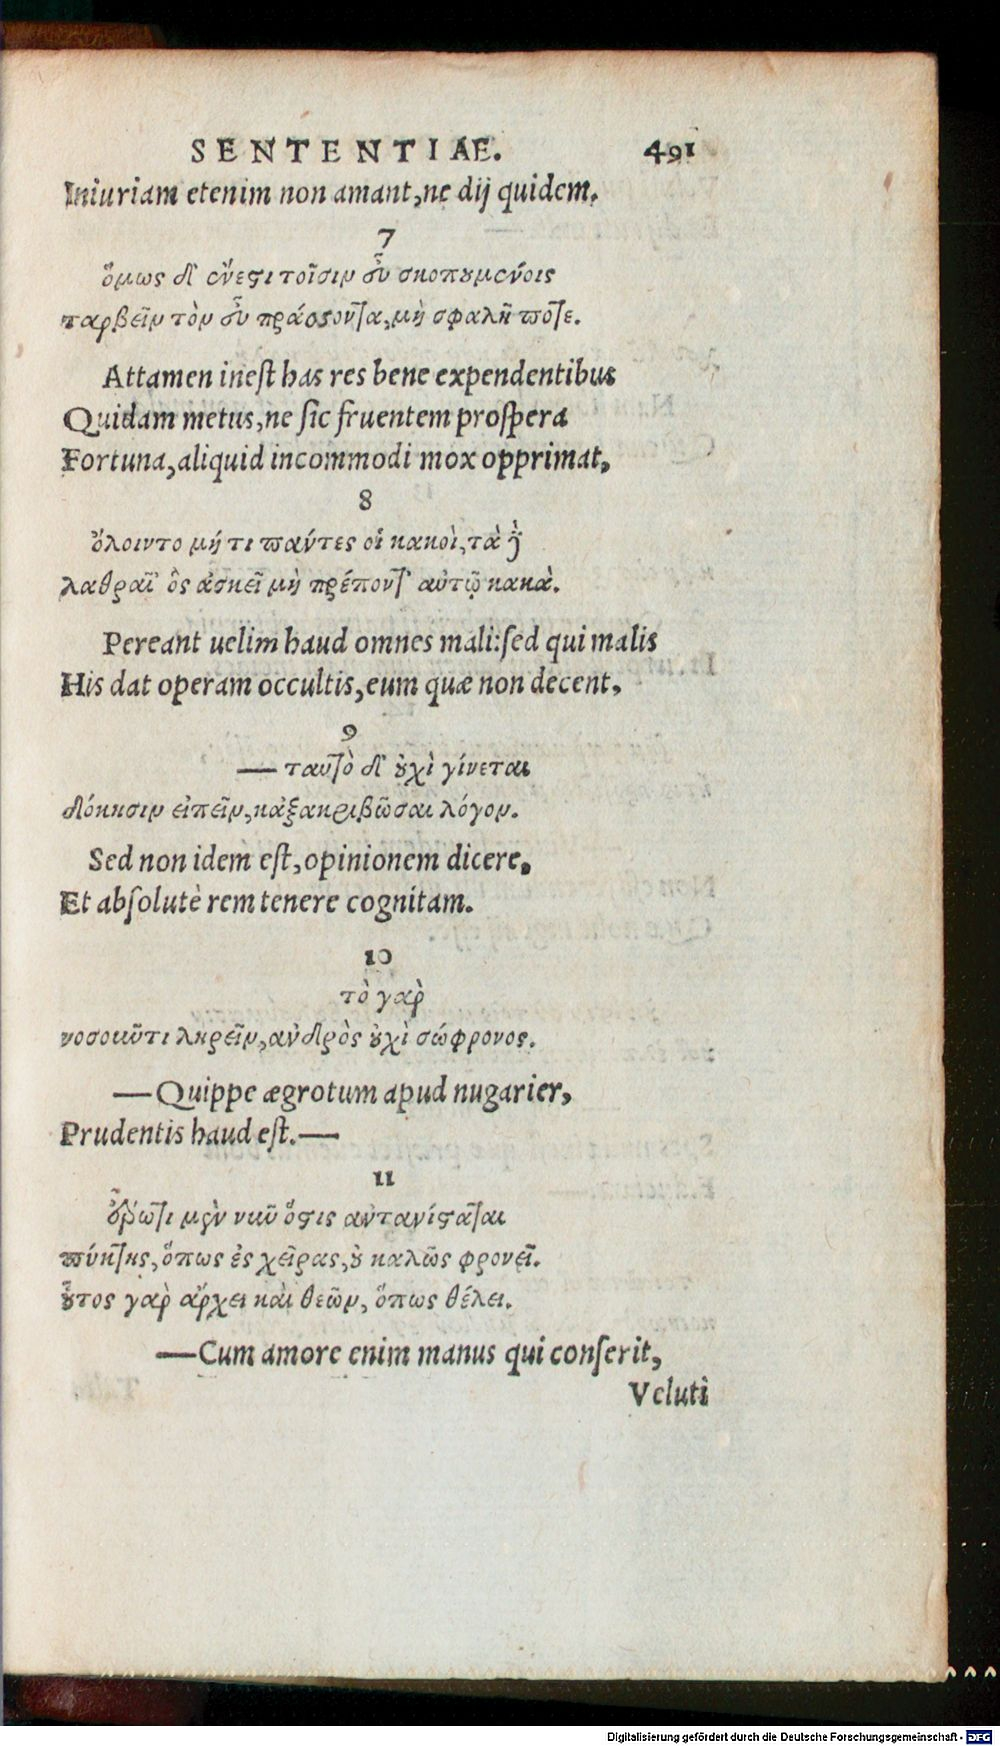 SENTENTIAE. 491
Iniuriam etenim non amant, ne dij quidem.
7
ὅμως δ' ἔνεστι τοῖσιν εὖ σκοπουμένοις
ταρβεῖν τὸν εὖ πράσσοντα, μὴ σφαλῇ ποτε.
Attamen inest has res bene expendentibus
Quidam metus, ne sic fruentem prospera
Fortuna, aliquid incommodi mox opprimat,
8
ὄλοιντο μή τι πάντες οἱ κακοὶ, τὰ δὲ
λαθραῖ' ὃς ἀσκεῖ μὴ πρέποντ' αὐτῷ κακὰ.
Pereant uelim haud omnes mali: sed qui malis
His dat operam occultis, eum quæ non decent.
9
— ταυτὸ δ' ουχὶ γίνεται
δόκησιν εἰπεῖν, κἀξακριβῶσαι λόγον.
Sed non idem est, opinionem dicere,
Et absolutè rem tenere cognitam.
10
τὸ γαρ̀
νοσοιῦτι ληρεῖν, ανδρὸς ουχὶ σώφρονος.
—Quippe ægrotum apud nugarier,
Prudentis haud est.—
11
μὲν νιῦ ὅστις αντανίσταται
πύκτης, ὅπως ἐς χεῖρας, ου καλῶς φρονεῖ.
οὗτος γαρ̀ ἄρχει καὶ θεῶν, ὅπως θέλει.
—Cum amore enim manus qui conserit,
Veluti
Digitalisierung gefördert durch die Deutsche Forschungsgemeinschaft - DFG